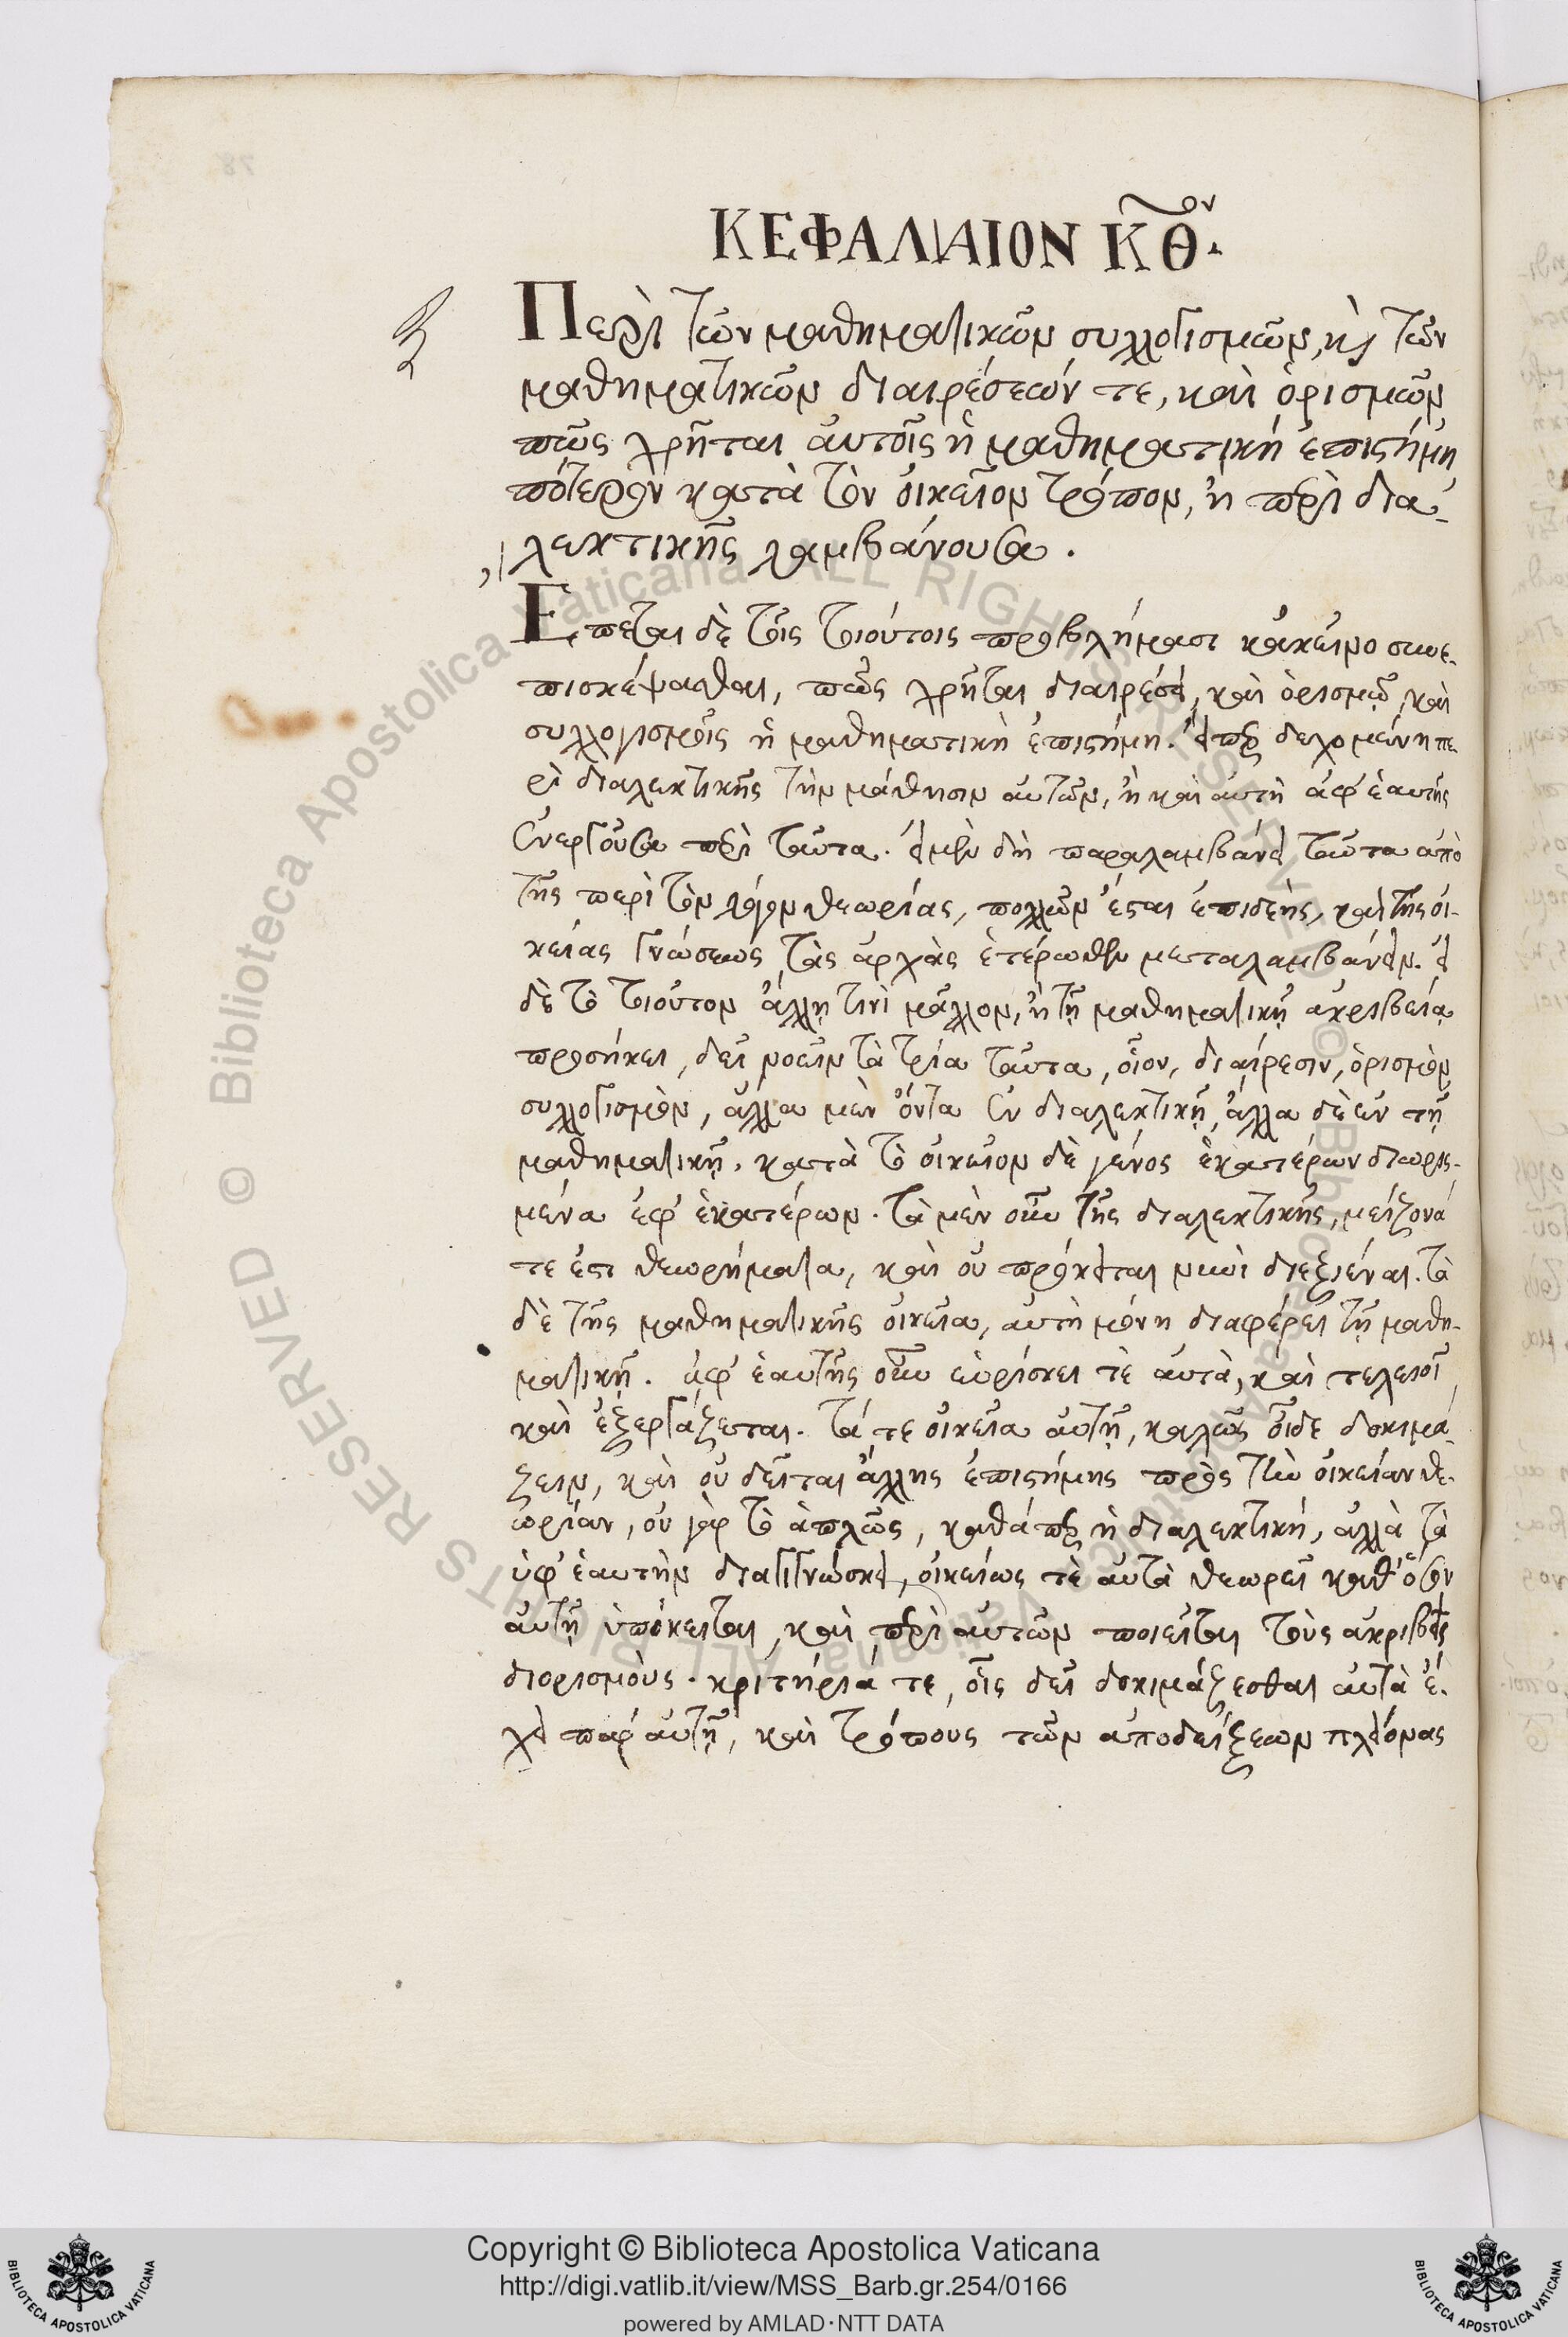 ΚΕΦΑΛΑΙΟΝ ΚΘον.
Περὶ τῶν μαθηματικῶν συλλογισμῶν, κ τῶν
μαθηματικῶν διαιρέσεών τε, καὶ ὁρισμῶν
πῶς χρῆται αὐτοῖς ἡ μαθηματική ἐπιστήμη
πότερον κατὰ τὸν οἰκεῖον τρόπον, ἢ περὶ δια-
λεκτικῆς λαμβάνουσα.
Ἕπεται δὲ τοῖς τοιούτοις προβλήμασι κἀκεῖνο συνε-
πισκέψασθαι, πῶς χρῆται διαιρέσει, καὶ ὁρισμῷ, καὶ
συλλογισμοῖς ἡ μαθηματικὴ ἐπιστήμη. εἴπερ δεχομένη πε-
ρὶ διαλεκτικῆς τὴν μάθησιν αὐτῶν, ἢ καὶ αὐτὴ ἀφ' ἑαυτῆς
ἐνεργοῦσα περὶ ταῦτα. εἰ μὲν δὴ παραλαμβάνει ταῦτα ἀπὸ
τῆς περὶ τὸν λόγον θεωρίας, πολλῶν ἔσται ἐπιδεὴς, καὶ τῆς οἰ-
κείας γνώσεως τὰς ἀρχὰς ἑτέρωθεν μεταλαμβάνειν. εἰ
δὲ τὸ τοιοῦτον ἄλλῃ τινὶ μᾶλλον, ἢ τῇ μαθηματικῇ ἀκριβείᾳ
προσήκει, δεῖ νοεῖν τὰ τρία ταῦτα, οἷον, διαίρεσιν, ὁρισμὸν
συλλογισμὸν, ἄλλα μὲν ὄντα ἐν διαλεκτικῇ, ἄλλα δὲ ἐν τῇ
μαθηματικῇ. κατὰ τὸ οἰκεῖον δὲ γένος ἑκατέρων διωρισ-
μένα ἐφ' ἑκατέρων. τὰ μὲν οὖν τῆς διαλεκτικῆς, μείζονά
τε ἐστι θεωρήματα, καὶ οὐ πρόκειται νυνὶ διεξιέναι. τὰ
δὲ τῆς μαθηματικῆς οἰκεῖα, αὐτὴ μόνη διαφέρει τῇ μαθη-
ματικῇ. ἀφ' ἑαυτῆς οὖν εὑρίσκει τὲ αὐτὰ, καὶ τελειοῖ
καὶ ἐξεργάζεται. τά τε οἰκεῖα αὐτῇ, καλῶς οἶδε δοκιμά-
ζειν, καὶ οὐ δεῖται ἄλλης ἐπιστήμης πρὸς τὴν οἰκείαν θε-
ωρίαν, οὐ γὰρ τὸ ἁπλῶς, καθάπερ ἡ διαλεκτική, ἀλλὰ τὰ
ὑφ' ἑαυτὴν διαγιγνώσκει, οἰκείως τὲ αὐτὰ θεωρεῖ καθ' ὅσον
αὐτῇ ὑπόκειται, καὶ περὶ αὐτῶν ποιεῖται τοὺς ἀκριβεῖς
διορισμοὺς. κριτήριά τε, οἷς δεῖ δοκιμάζεσθαι αὐτὰ ἔ-
χει παρ' αὐτῇ, καὶ τρόπους τῶν ἀποδείξεων πλείονας
Copyright © Biblioteca Apostolica Vaticana
http://digi.vatlib.it/view/MSS_Barb.gr.254/0166
powered by AMLAD·NTT DATA
BIBLIOTECA APOSTOLICA VATICANA
BIBLIOTECA APOSTOLICA VATICANA
© Biblioteca Apostolica Vaticana ALL RIGHTS RESERVED
© Biblioteca Apostolica Vaticana ALL RIGHTS RESERVED